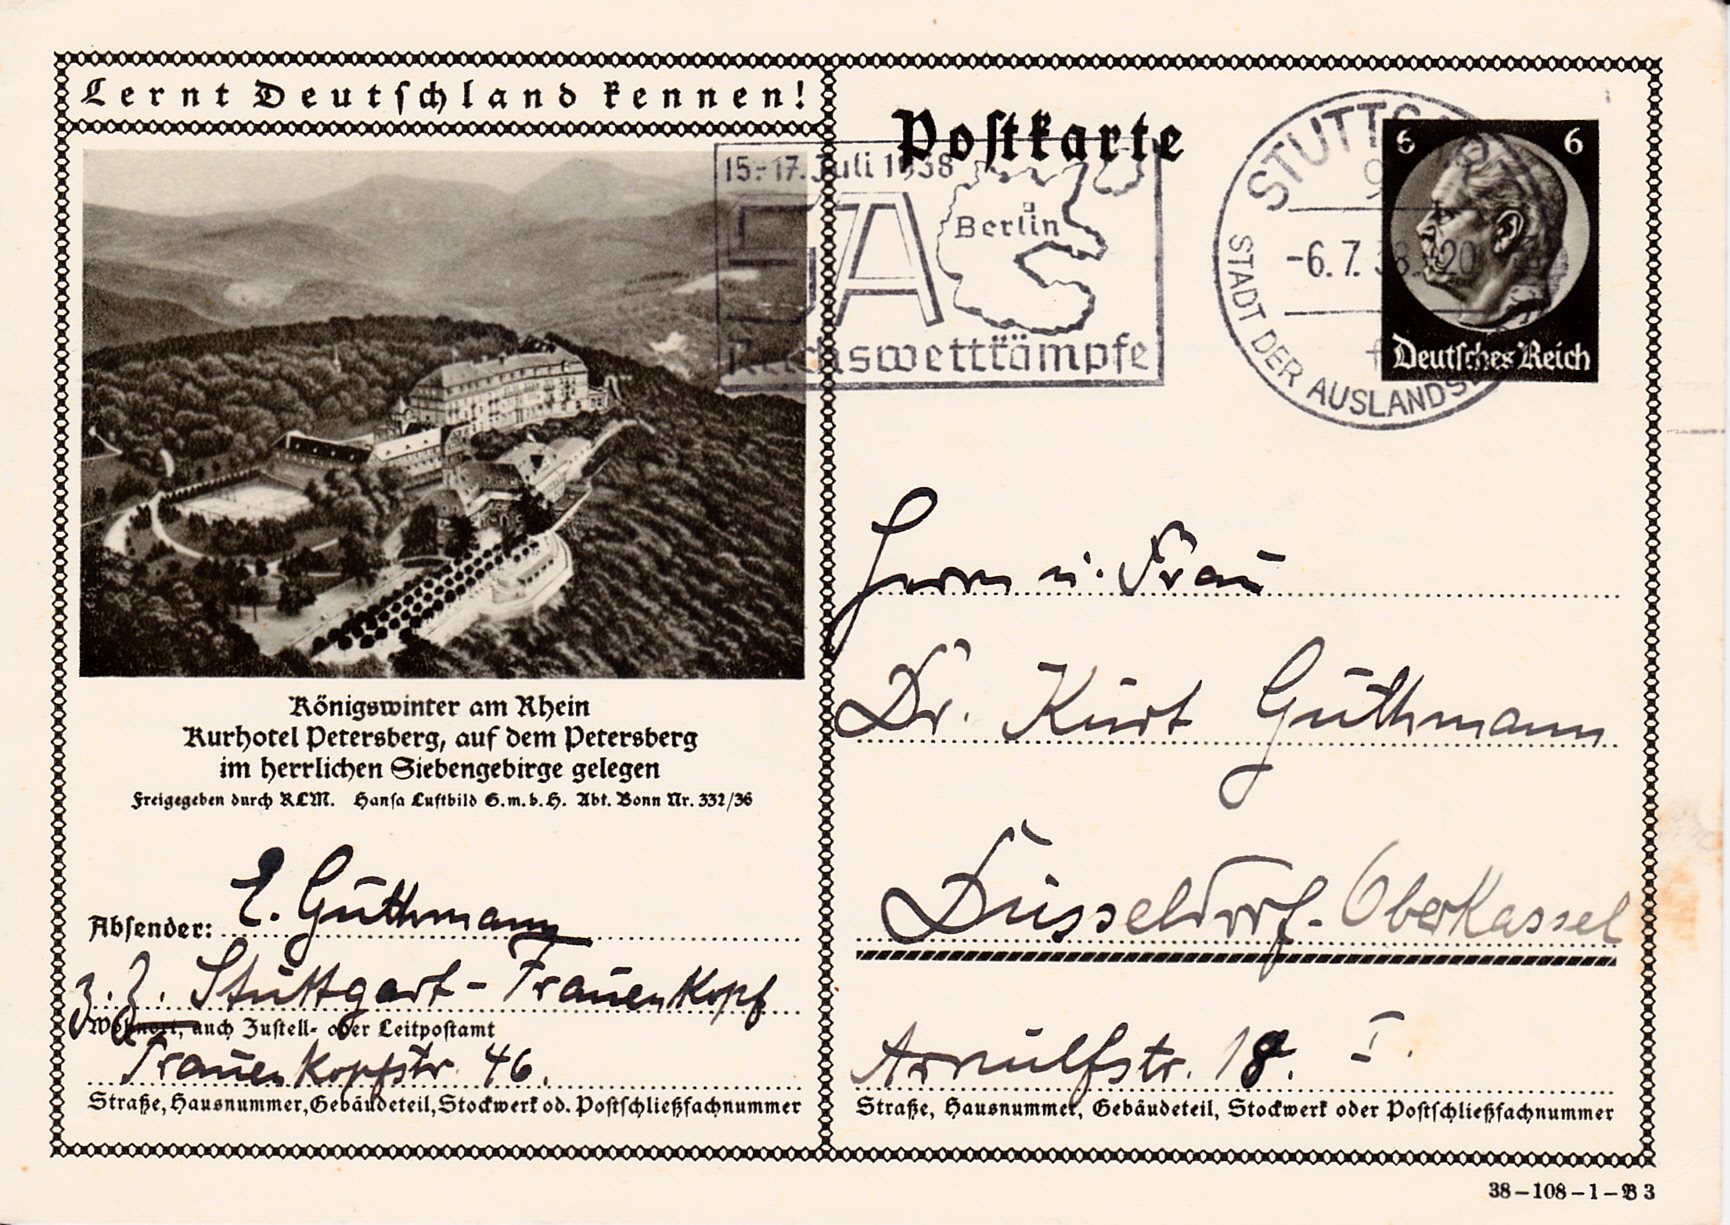 Lernt Deutschland kennen!
Postkarte
15.-17. Juli 1938
SA
Berlin
Reichswettkämpfe
STUTTG
9
-6.7.38. 20
STADT DER AUSLANDS
6 6
Deutsches Reich
Königswinter am Rhein
Kurhotel Petersberg, auf dem Petersberg
im herrlichen Siebengebirge gelegen
Freigegeben durch RLM. Hansa Luftbild G.m.b.H. Abt. Bonn Nr. 332/36
Absender: E. Guthmann
z. Z. Stuttgart-Frauenkopf
Wohnort, auch Zustell- oder Leitpostamt
Frauenkopfstr. 46.
Straße, Hausnummer, Gebäudeteil, Stockwerk od. Postschließfachnummer
Herrn u. Frau
Dr. Kurt Guthmann
Düsseldorf-Oberkassel
Arnulfstr. 18. I.
Straße, Hausnummer, Gebäudeteil, Stockwerk oder Postschließfachnummer
38-108-1-B 3